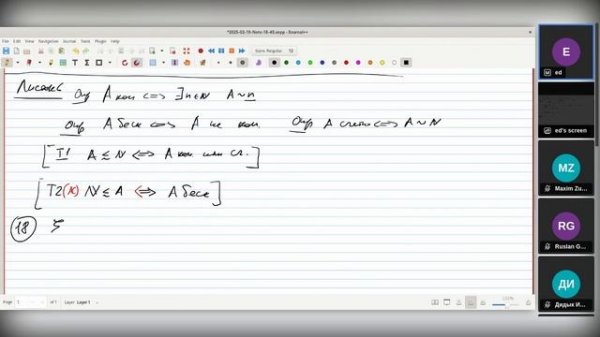 *2025-03-19-Note-18-49.xopp - Xournal++
Опр A кон ⟺ ∃n∈N A~n
Опр A беск ⟺ A не кон. Опр A счетн ⟺ A~N
[T1 A ≤ N ⟺ A кон или сч.]
[T2(*) N ≤ A ⟺ A беск]
18
Page 1 of 1 Layer Layer 1
E
ed
ed's screen
MZ
Maxim Zu...
RG
Ruslan G...
ДИ
Дядык И...